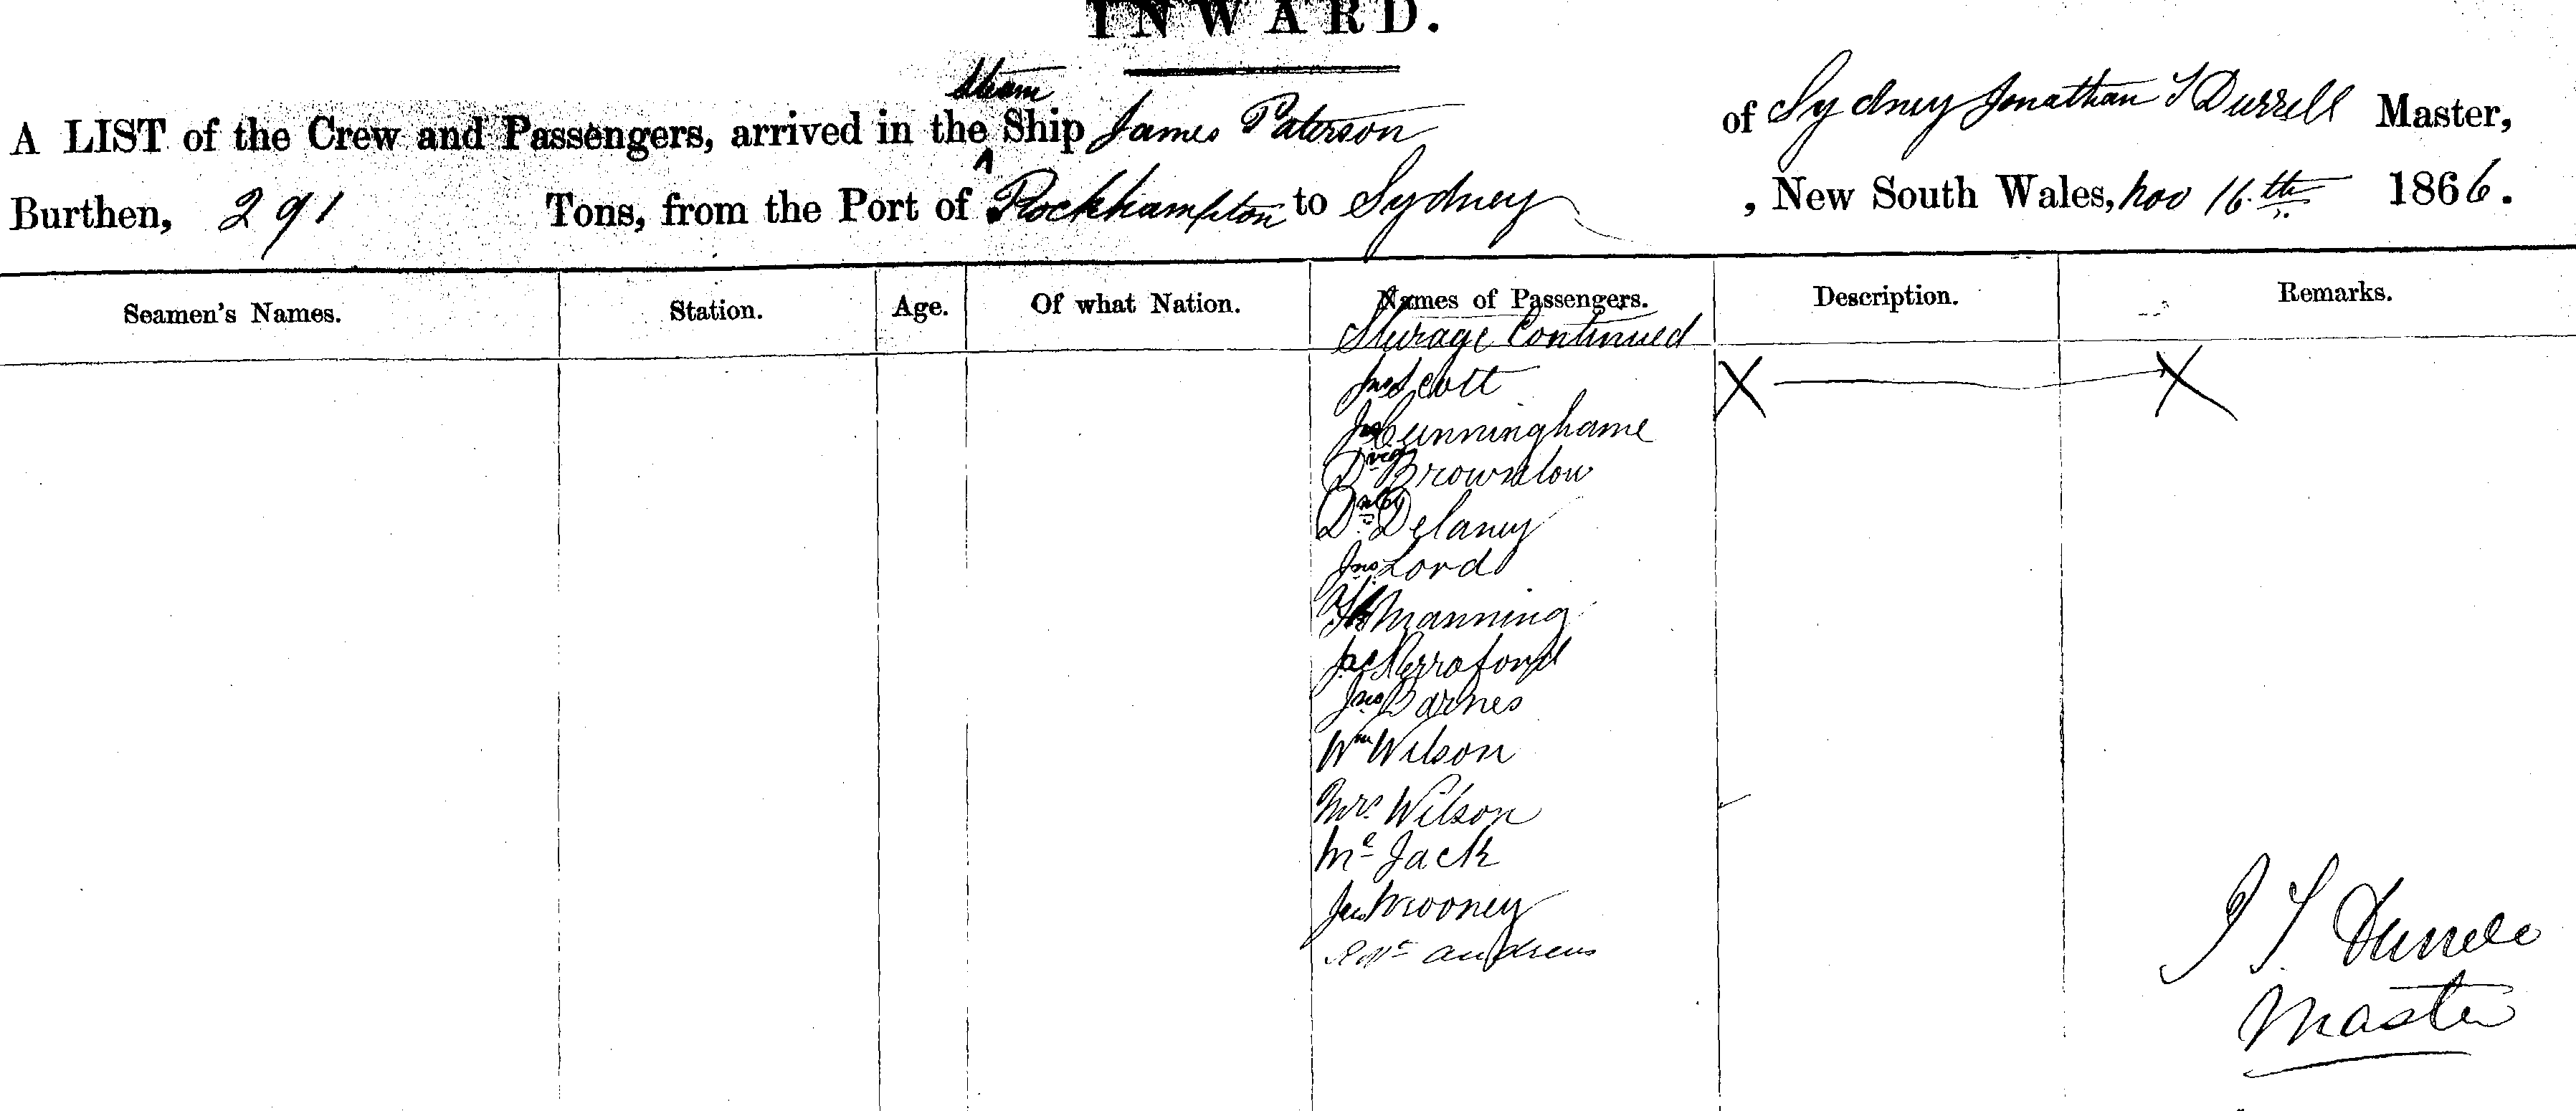 INWARD.
steam
A LIST of the Crew and Passengers, arrived in the ^ Ship James Paterson of Sydney Jonathan S Durrell Master,
Burthen, 291 Tons, from the Port of Rockhampton to Sydney, New South Wales, Nov 16th 1866.
Seamen's Names. Station. Age. Of what Nation. Names of Passengers. Description. Remarks.
Sturage Continued
Jno Scott X X
Cunninghame
Brownlow
Delaney
Jno Lord
Manning
Jno Barnes
Wm Wilson
Mrs. Wilson
Mc Jack
Mooney
Andrews
J S Durrell
Master